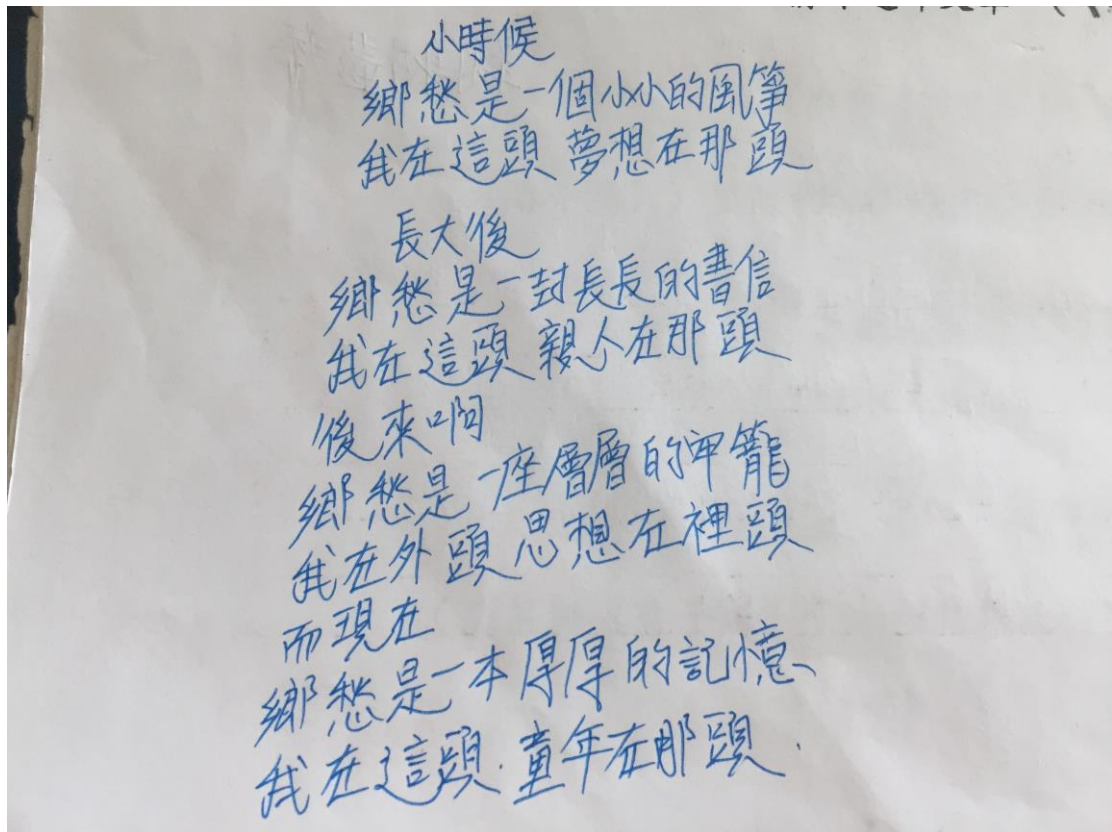 小時候
鄉愁是一個小小的風箏
我在這頭 夢想在那頭
長大後
鄉愁是一封長長的書信
我在這頭 親人在那頭
後來啊
鄉愁是一座層層的牢籠
我在外頭 思想在裡頭
而現在
鄉愁是一本厚厚的記憶
我在這頭.童年在那頭.